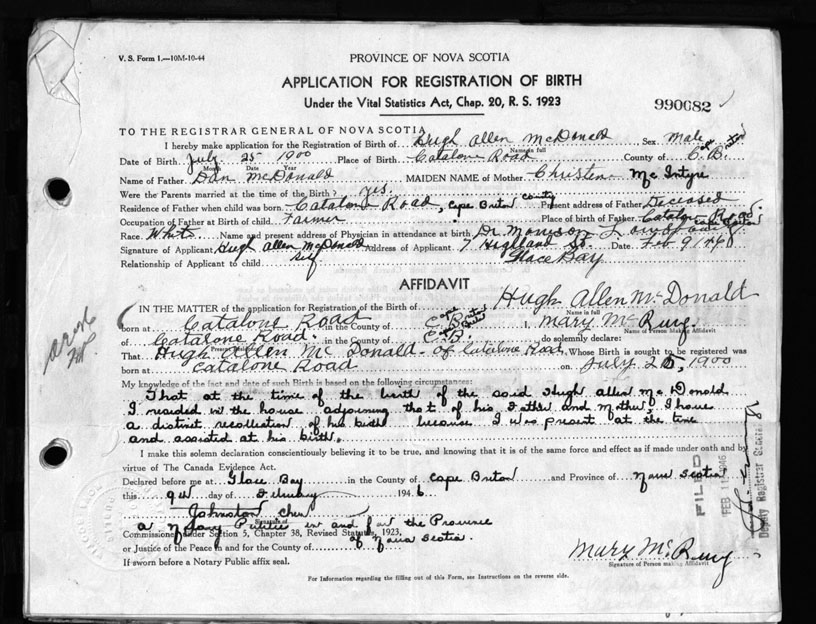 V. S. Form 1.—10M-10-44
PROVINCE OF NOVA SCOTIA
APPLICATION FOR REGISTRATION OF BIRTH
Under the Vital Statistics Act, Chap. 20, R. S. 1923
990682
TO THE REGISTRAR GENERAL OF NOVA SCOTIA
I hereby make application for the Registration of Birth of Hugh Allen McDonald Sex Male
Name in full
Date of Birth July 25 1900 Place of Birth Catalone Road County of C. B.
Month Date Year
Name of Father Dan McDonald MAIDEN NAME of Mother Christena McIntyre
Were the Parents married at the time of the Birth? yes.
Residence of Father when child was born Catalone Road, Cape Breton County Present address of Father Deceased
Occupation of Father at Birth of child Farmer Place of birth of Father Catalone Road
Race White Name and present address of Physician in attendance at birth Dr. Morrison
Signature of Applicant Hugh Allen McDonald Address of Applicant 7 Highland St. Date Feb 9/46
Relationship of Applicant to child self Glace Bay
AFFIDAVIT
IN THE MATTER of the application for Registration of the Birth of Hugh Allen McDonald
Name in full
born at Catalone Road in the County of Cape Breton I, Mary Mc
Name of Person Making Affidavit
of Catalone Road. in the County of C. B. do solemnly declare:
That Hugh Allen McDonald of Catalone Road Whose Birth is sought to be registered was
born at Catalone Road on July 25, 1900
My knowledge of the fact and date of such Birth is based on the following circumstances:
That at the time of the birth of the said Hugh Allen McDonald
I resided in the house adjoining that of his Father and Mother, I have
a distinct recollection of his birth because I was present at the time
and assisted at his birth.
I make this solemn declaration conscientiously believing it to be true, and knowing that it is of the same force and effect as if made under oath and by
virtue of The Canada Evidence Act.
Declared before me at Glace Bay in the County of Cape Breton and Province of Nova Scotia
this 9th day of February 1946
Johnston
Signature of
a Notary Public in and for the Province
Commissioner under Section 5, Chapter 38, Revised Statutes, 1923,
of Nova Scotia
or Justice of the Peace in and for the County of
If sworn before a Notary Public affix seal.
Mary Mc
Signature of Person making Affidavit
For Information regarding the filling out of this Form, see Instructions on the reverse side.
FILED
FEB 1946
Deputy Registrar General